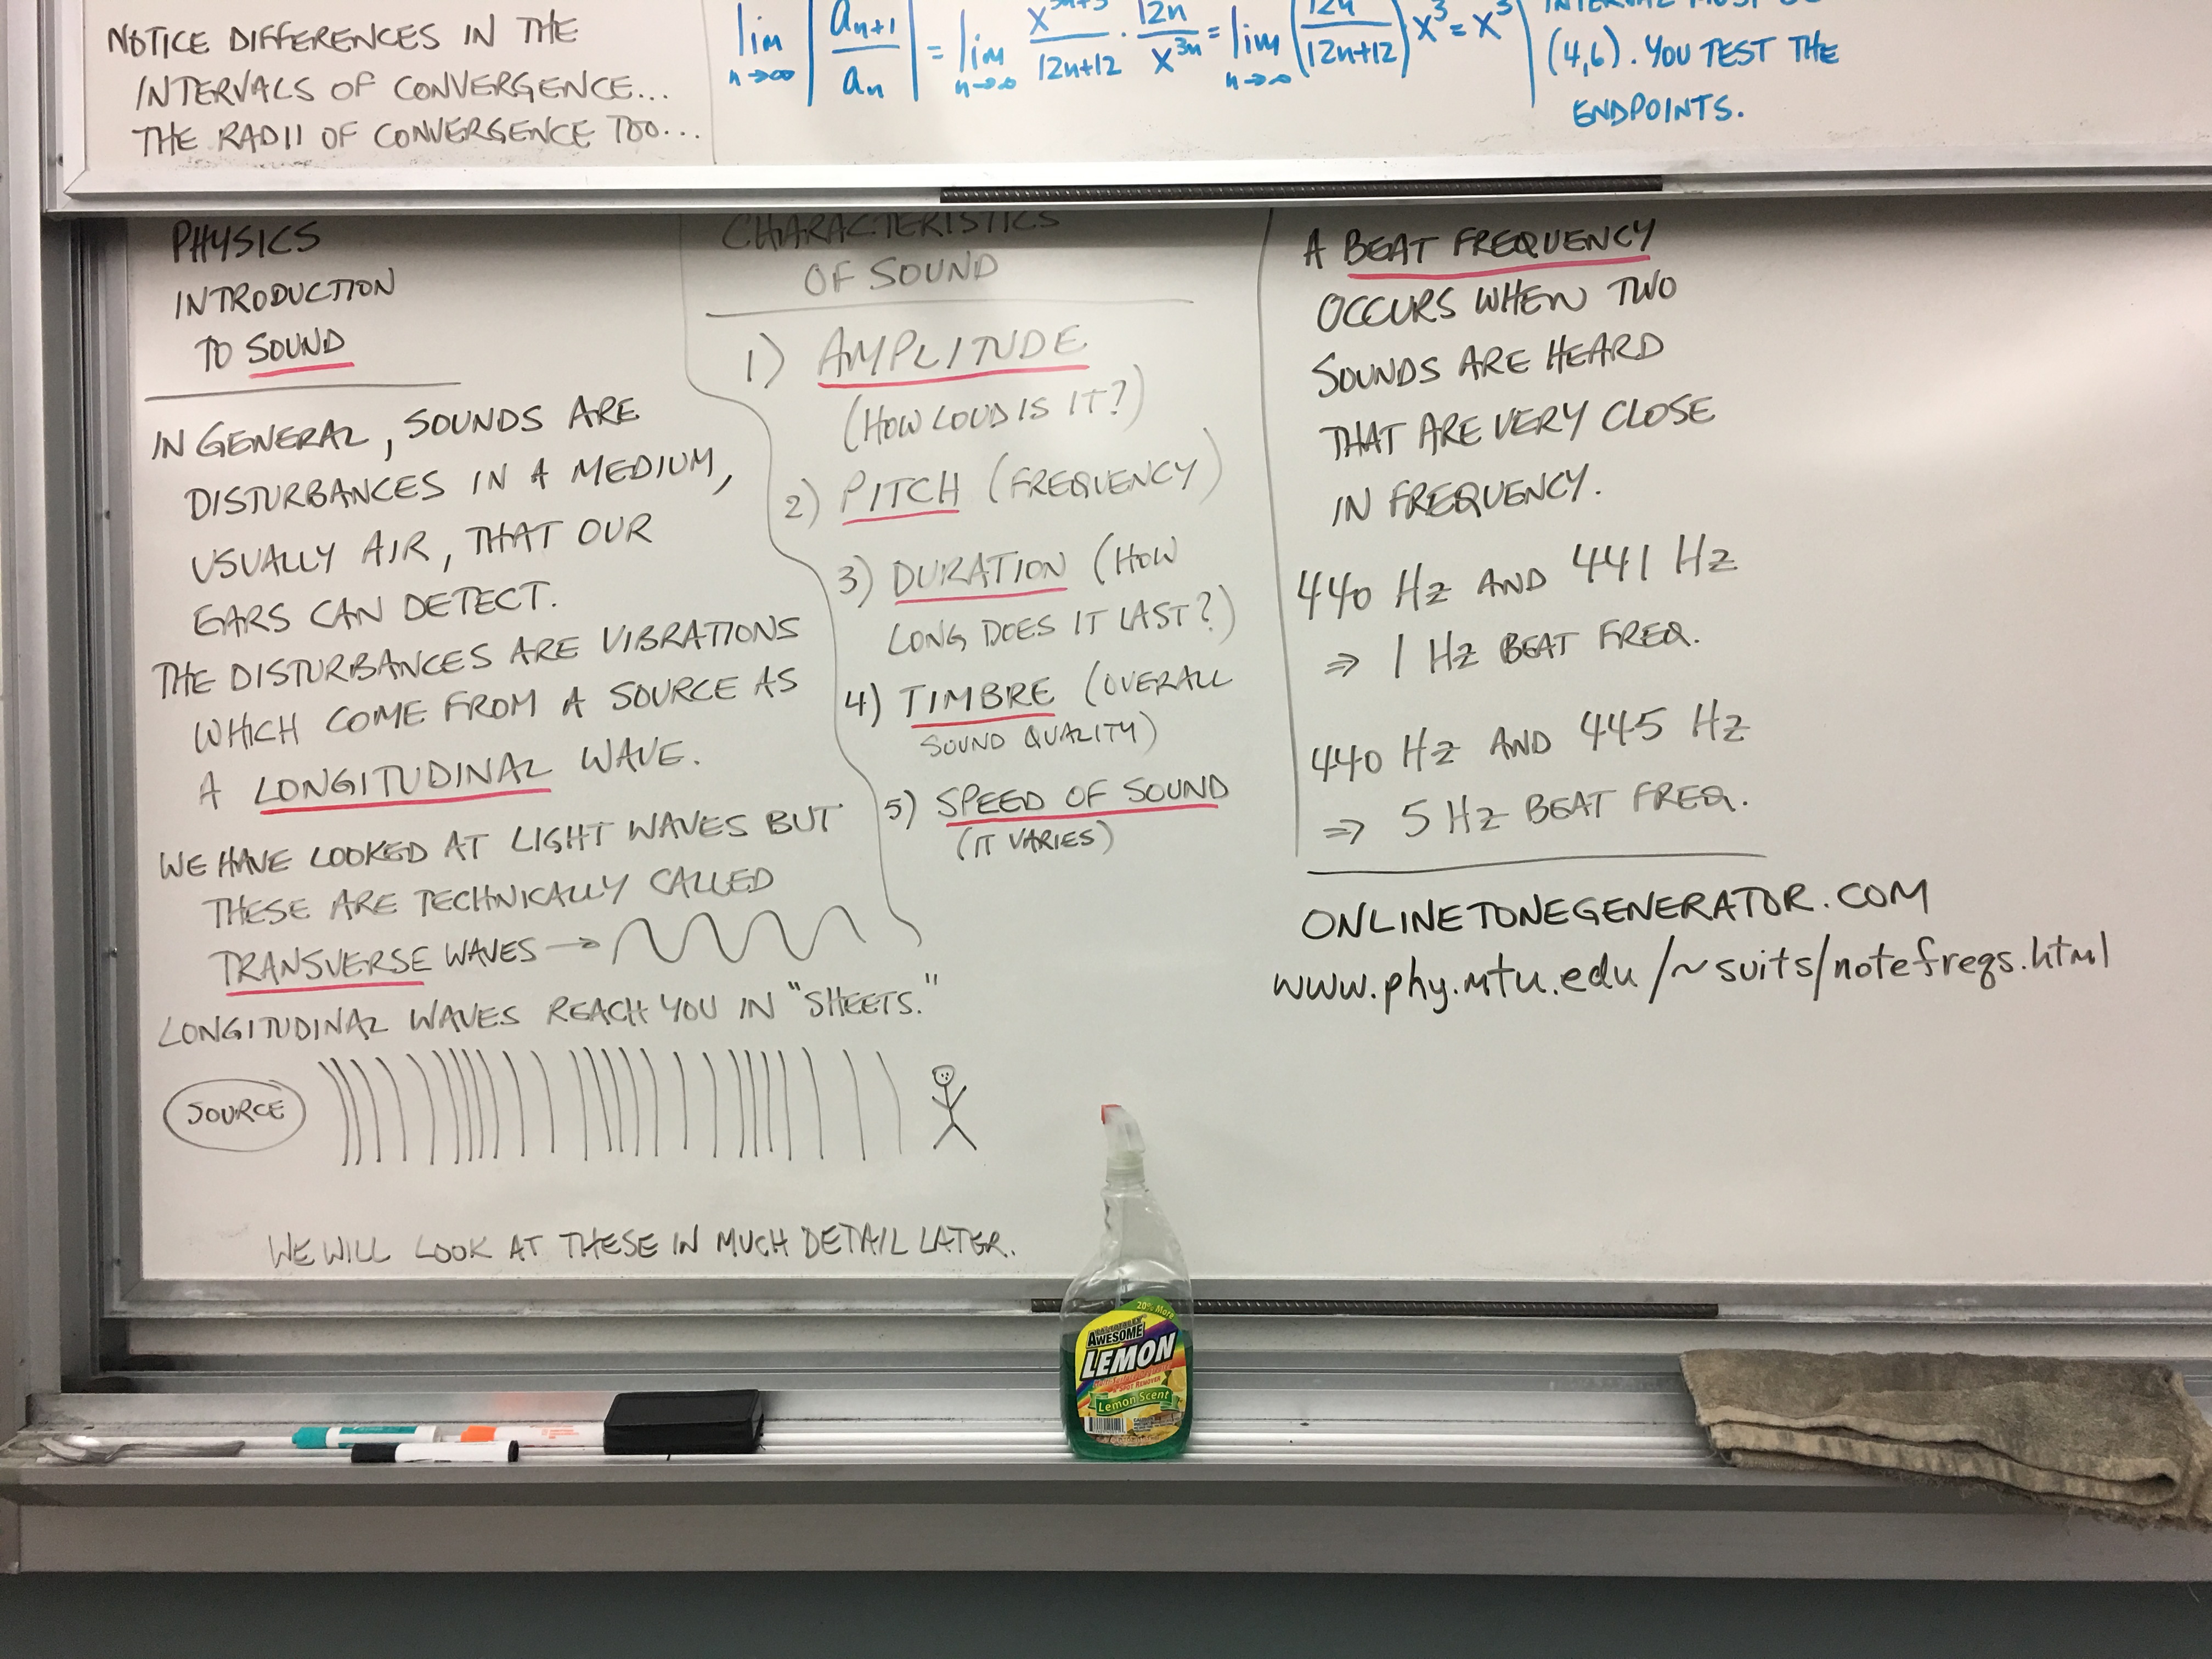 NOTICE DIFFERENCES IN THE
INTERVALS OF CONVERGENCE...
THE RADII OF CONVERGENCE TOO...
lim n→∞ | an+1 / an | = lim n→∞ x^3n+3 / 12n+12 · 12n / x^3n = lim n→∞ (12n / 12n+12) x^3 = x^3
INTERVAL MUST BE
(4,6). YOU TEST THE
ENDPOINTS.
PHYSICS
INTRODUCTION
TO SOUND
IN GENERAL, SOUNDS ARE
DISTURBANCES IN A MEDIUM,
USUALLY AIR, THAT OUR
EARS CAN DETECT.
THE DISTURBANCES ARE VIBRATIONS
WHICH COME FROM A SOURCE AS
A LONGITUDINAL WAVE.
WE HAVE LOOKED AT LIGHT WAVES BUT
THESE ARE TECHNICALLY CALLED
TRANSVERSE WAVES →
LONGITUDINAL WAVES REACH YOU IN "SHEETS."
SOURCE
WE WILL LOOK AT THESE IN MUCH DETAIL LATER.
CHARACTERISTICS
OF SOUND
1) AMPLITUDE
(HOW LOUD IS IT?)
2) PITCH (FREQUENCY)
3) DURATION (HOW
LONG DOES IT LAST?)
4) TIMBRE (OVERALL
SOUND QUALITY)
5) SPEED OF SOUND
(IT VARIES)
A BEAT FREQUENCY
OCCURS WHEN TWO
SOUNDS ARE HEARD
THAT ARE VERY CLOSE
IN FREQUENCY.
440 Hz AND 441 Hz
⇒ 1 Hz BEAT FREQ.
440 Hz AND 445 Hz
⇒ 5 Hz BEAT FREQ.
ONLINETONEGENERATOR.COM
www.phy.mtu.edu/~suits/notefreqs.html
20% More
AWESOME
LEMON
& SPOT REMOVER
Lemon Scent